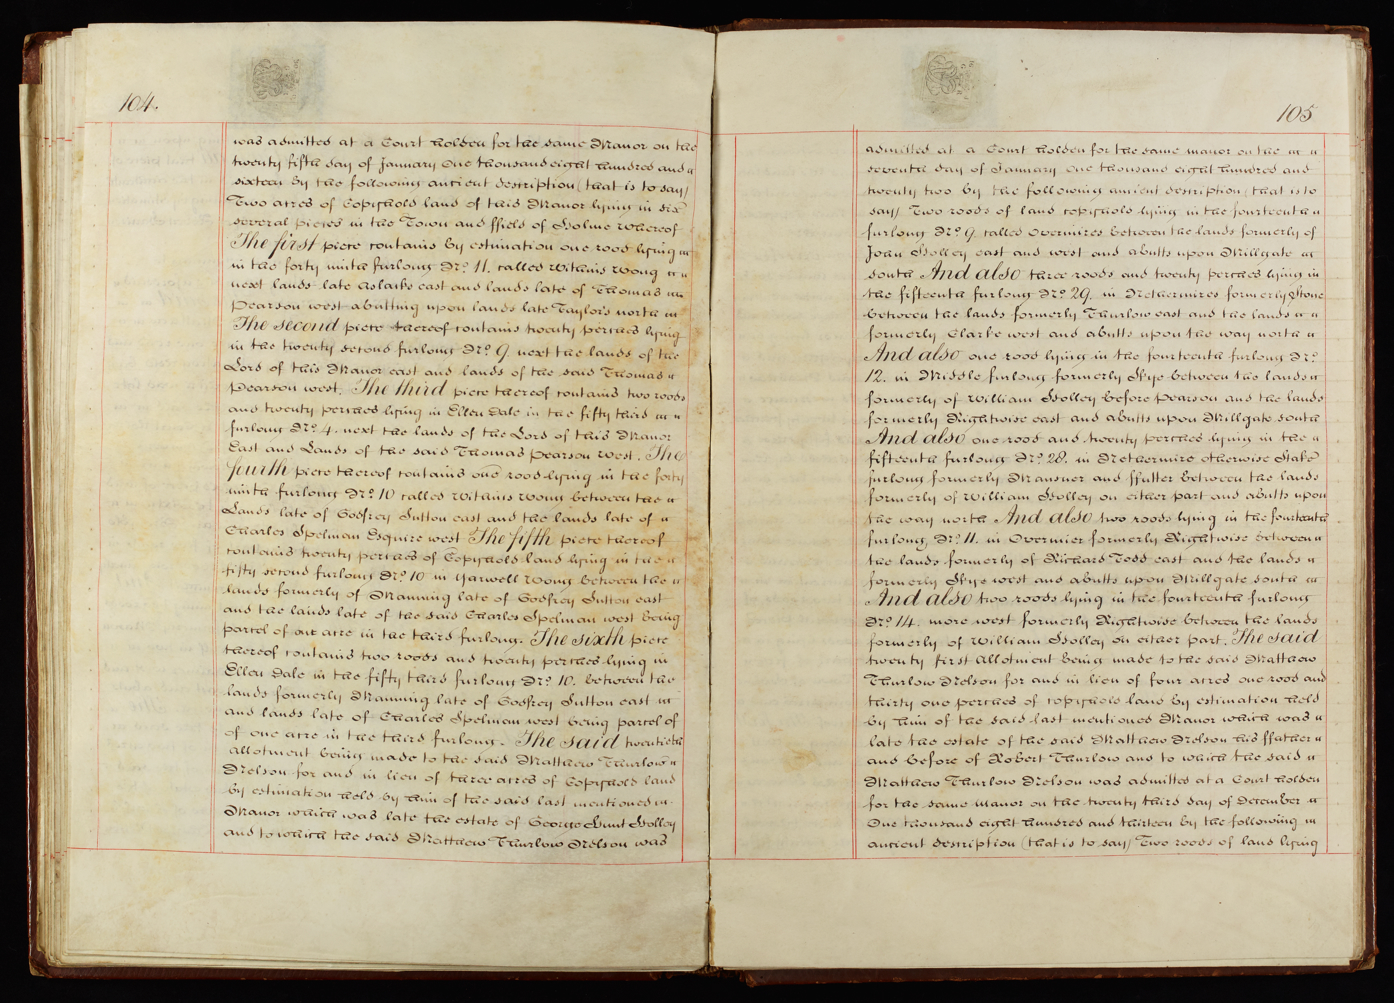 104.
was admitted at a Court holden for the same Manor on the
twenty fifth day of January One thousand eight hundred and
sixteen by the following ancient description (that is to say)
Two acres of Copyhold land of this Manor lying in six
several pieces in the Town and ffield of Holme whereof
The first piece contains by estimation one rood lying
in the forty ninth furlong No. 11. called Withins Wong
next lands late Aslacks east and lands late of Thomas
Pearson west abutting upon lands late Taylor's north
The second piece thereof contains twenty perches lying
in the twenty second furlong No. 9. next the lands of the
Lord of this Manor east and lands of the said Thomas
Pearson west. The third piece thereof contains two roods
and twenty perches lying in Ellen Dale in the fifty third
furlong No. 4. next the lands of the Lord of this Manor
East and Lands of the said Thomas Pearson West. The
fourth piece thereof contains one rood lying in the forty
ninth furlong No. 10 called Withins Wong between the
Lands late of Godfrey Sutton east and the lands late of
Charles Spelman Esquire west The fifth piece thereof
contains twenty perches of Copyhold land lying in the
fifty second furlong No. 10 in Yarwell Wong between the
lands formerly of Manning late of Godfrey Sutton east
and the lands late of the said Charles Spelman west being
parcel of an acre in the third furlong. The sixth piece
thereof contains two roods and twenty perches lying in
Ellen Dale in the fifty third furlong No. 10. between the
lands formerly Manning late of Godfrey Sutton east
and lands late of Charles Spelman west being parcel of
of one acre in the third furlong. The said twentieth
allotment being made to the said Matthew Thurlow
Nelson for and in lieu of three acres of Copyhold land
by estimation held by him of the said last mentioned
Manor which was late the estate of George Hunt Holley
and to which the said Matthew Thurlow Nelson was
105
admitted at a Court holden for the same manor on the
seventh day of January One thousand eight hundred and
twenty two by the following ancient description (that is to
say) Two roods of land copyhold lying in the fourteenth
furlong No. 9. called Overmires between the lands formerly of
John Holley east and west and abutts upon Millgate
south And also three roods and twenty perches lying in
the fifteenth furlong No. 29. in Nethermires formerly Stone
between the lands formerly Thurlow east and the lands
formerly Clarke west and abutts upon the way north
And also one rood lying in the fourteenth furlong No.
12. in Middle furlong formerly Skye between the lands
formerly of William Holley before Pearson and the lands
formerly Rightwise east and abutts upon Millgate south
And also one rood and twenty perches lying in the
fifteenth furlong No. 28. in Nethermire otherwise Stake
furlong formerly Mansuer and ffutter between the lands
formerly of William Holley on either part and abutts upon
the way north And also two roods lying in the fourteenth
furlong No. 11. in Overmier formerly Rightwise between
the lands formerly of Richard Todd east and the lands
formerly Skye west and abutts upon Millgate south
And also two roods lying in the fourteenth furlong
No. 14. more west formerly Rightwise between the lands
formerly of William Holley on either part. The said
twenty first Allotment being made to the said Matthew
Thurlow Nelson for and in lieu of four acres one rood and
thirty one perches of copyhold land by estimation held
by him of the said last mentioned Manor which was
late the estate of the said Matthew Nelson his ffather
and before of Robert Thurlow and to which the said
Matthew Thurlow Nelson was admitted at a Court holden
for the same manor on the twenty third day of December
One thousand eight hundred and thirteen by the following
ancient description (that is to say) Two roods of land lying